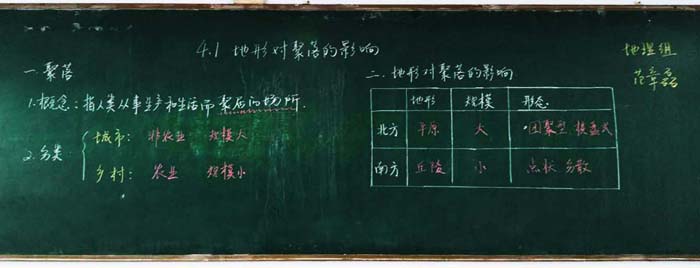 4.1 地形对聚落的影响
地理组
一.聚落
1.概念:指人类从事生产和生活而聚居的场所.
2.分类
城市: 非农业 规模大
乡村: 农业 规模小
二.地形对聚落的影响
地形 规模 形态
北方 平原 大 团聚型 棋盘式
南方 丘陵 小 点状 分散